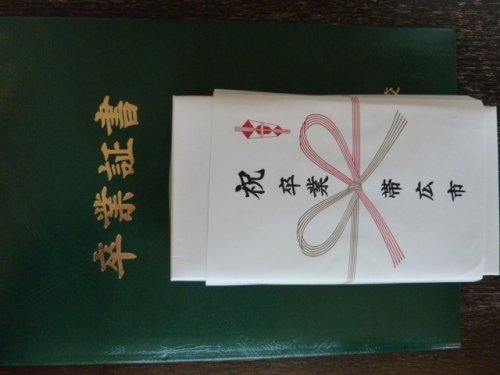 卒業証書
祝
卒業
帯広市